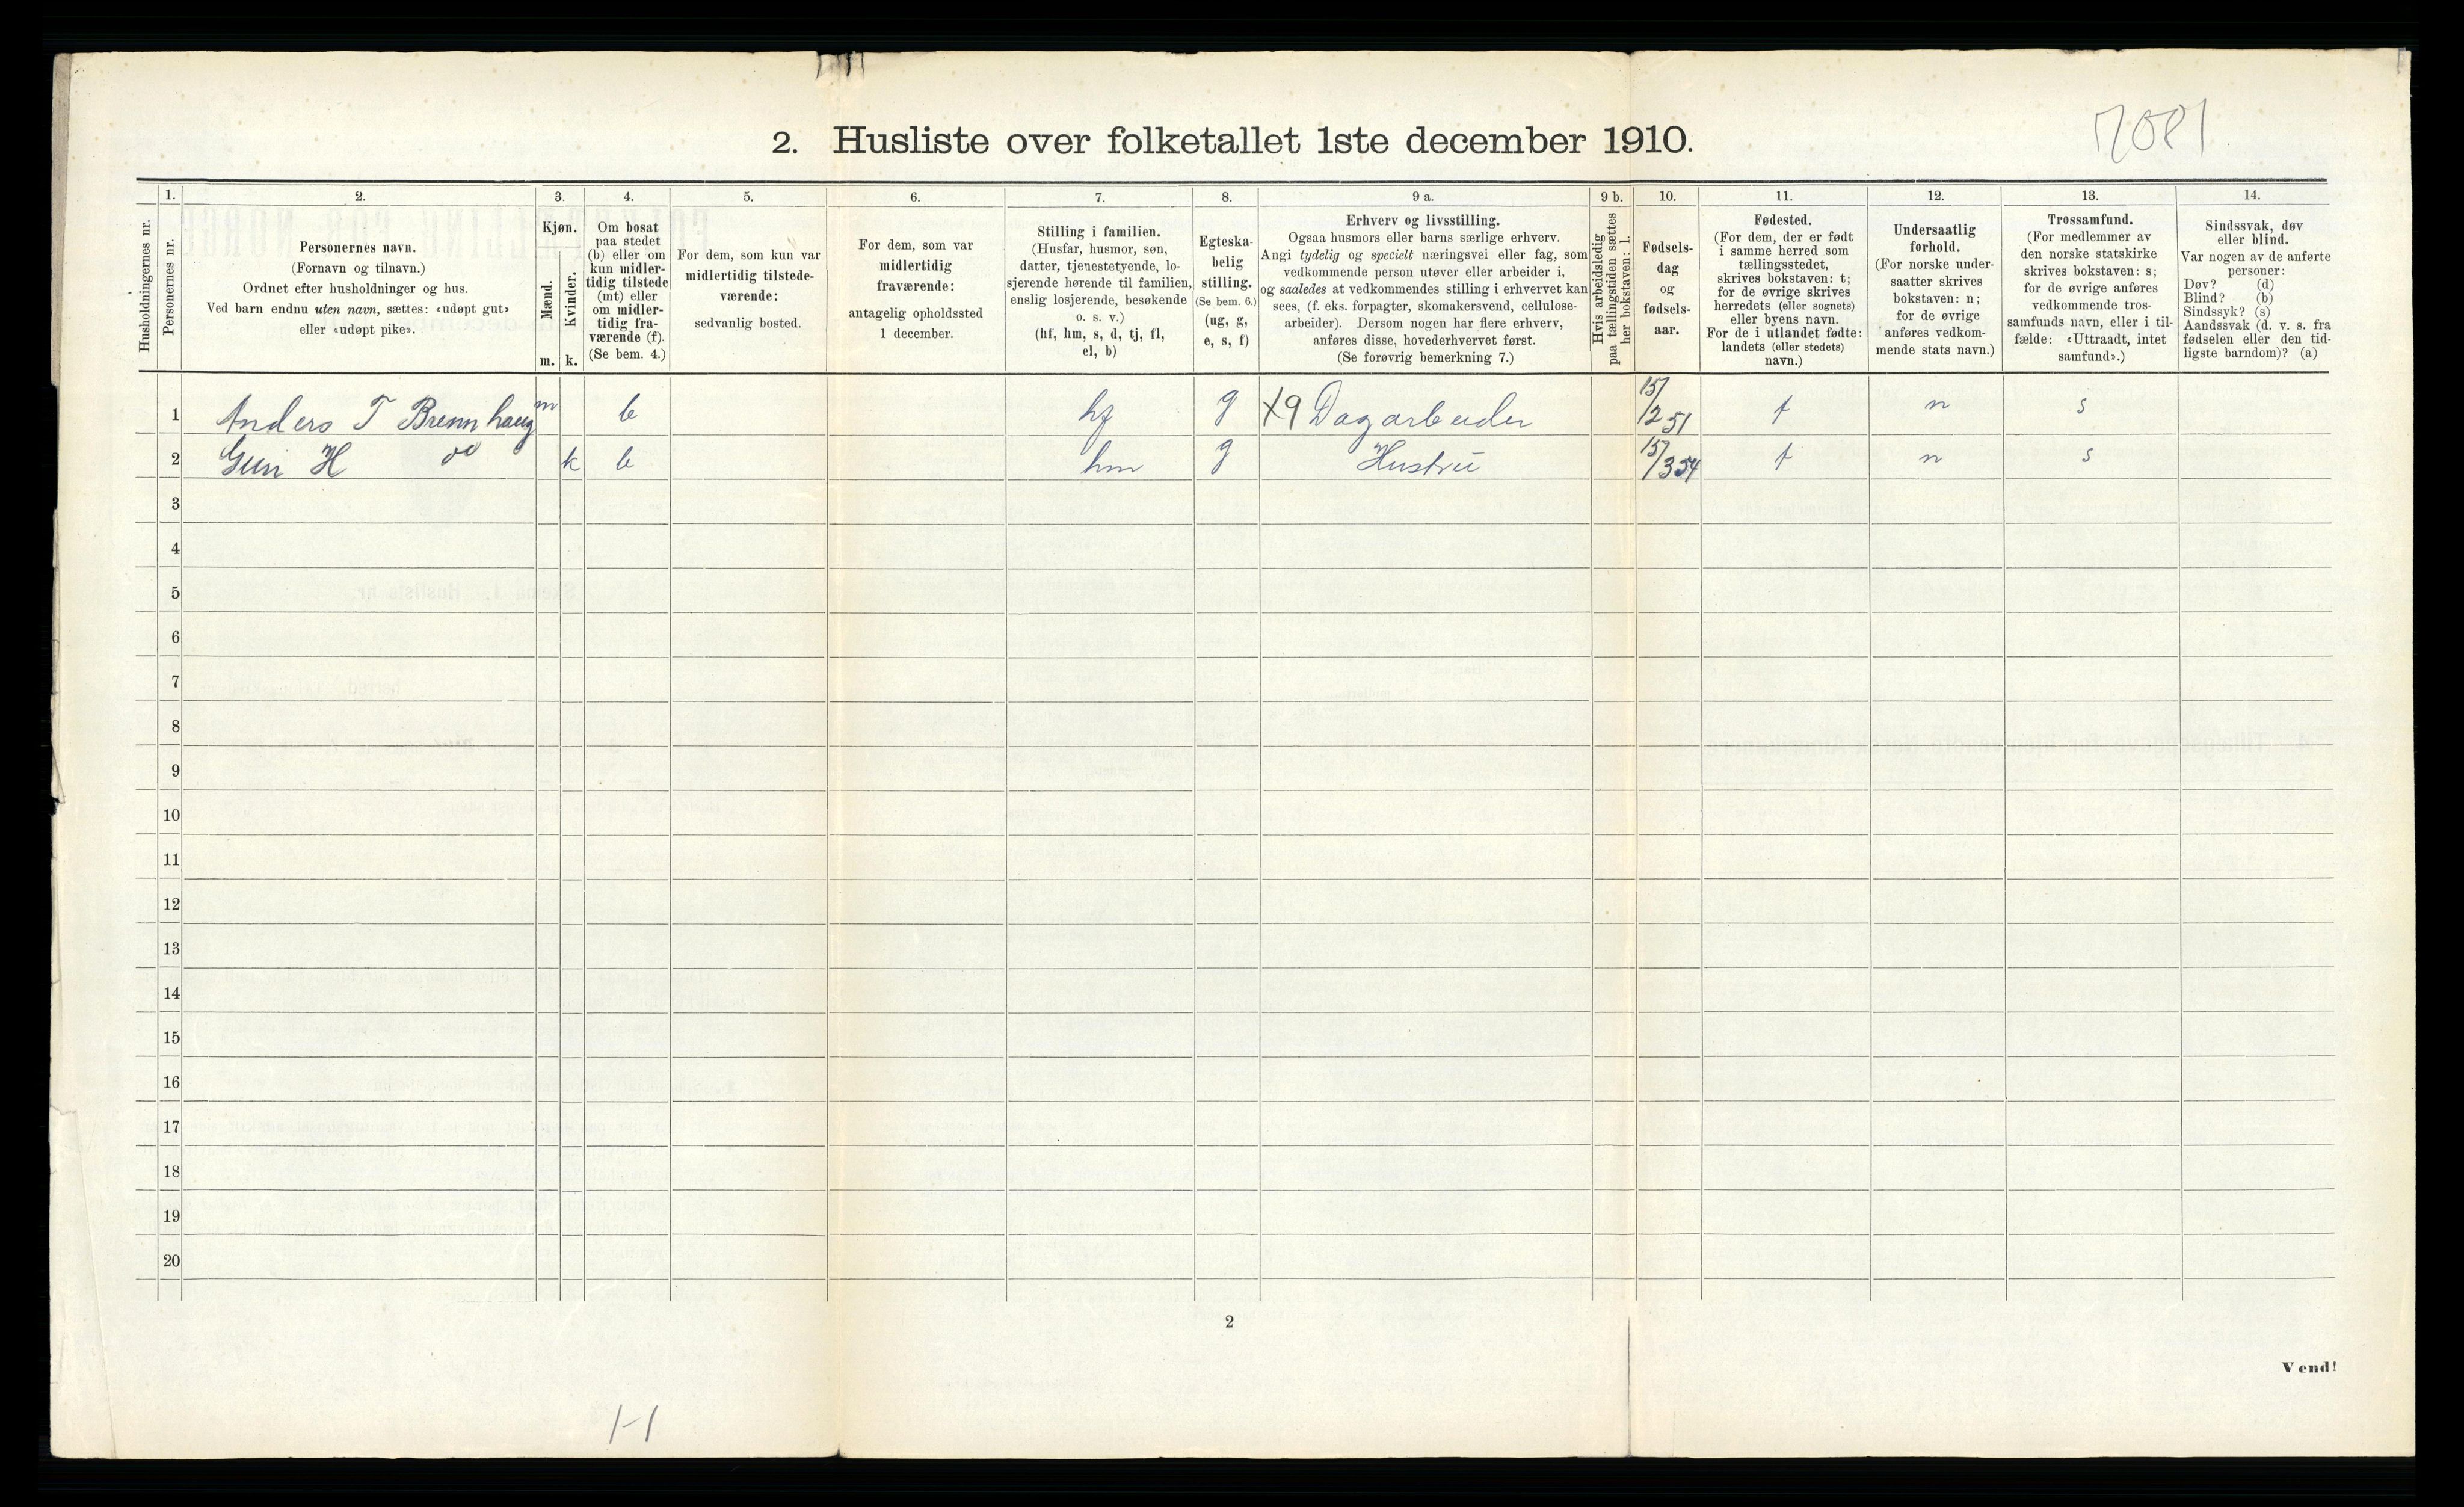 2. Husliste over folketallet 1ste december 1910.
1. 2. 3. 4. 5. 6. 7. 8. 9 a. 9 b. 10. 11. 12. 13. 14.
Husholdningernes nr.
Personernes nr.
Personernes navn.
(Fornavn og tilnavn.)
Ordnet efter husholdninger og hus.
Ved barn endnu uten navn, sættes: «udøpt gut»
eller «udøpt pike».
Kjøn.
Mænd.
Kvinder.
m. k.
Om bosat
paa stedet
(b) eller om
kun midler-
tidig tilstede
(mt) eller
om midler-
tidig fra-
værende (f).
(Se bem. 4.)
For dem, som kun var
midlertidig tilstede-
værende:
sedvanlig bosted.
For dem, som var
midlertidig
fraværende:
antagelig opholdssted
1 december.
Stilling i familien.
(Husfar, husmor, søn,
datter, tjenestetyende, lo-
sjerende hørende til familien,
enslig losjerende, besøkende
o. s. v.)
(hf, hm, s, d, tj, fl,
el, b)
Egteska-
belig
stilling.
(Se bem. 6.)
(ug, g,
e, s, f)
Erhverv og livsstilling.
Ogsaa husmors eller barns særlige erhverv.
Angi tydelig og specielt næringsvei eller fag, som
vedkommende person utøver eller arbeider i,
og saaledes at vedkommendes stilling i erhvervet kan
sees, (f. eks. forpagter, skomakersvend, cellulose-
arbeider). Dersom nogen har flere erhverv,
anføres disse, hovederhvervet først.
(Se forøvrig bemerkning 7.)
Hvis arbeidsledig
paa tællingstiden sættes
her bokstaven: l.
Fødsels-
dag
og
fødsels-
aar.
Fødested.
(For dem, der er født
i samme herred som
tællingsstedet,
skrives bokstaven: t;
for de øvrige skrives
herredets (eller sognets)
eller byens navn.
For de i utlandet fødte:
landets (eller stedets)
navn.)
Undersaatlig
forhold.
(For norske under-
saatter skrives
bokstaven: n;
for de øvrige
anføres vedkom-
mende stats navn.)
Trossamfund.
(For medlemmer av
den norske statskirke
skrives bokstaven: s;
for de øvrige anføres
vedkommende tros-
samfunds navn, eller i til-
fælde: «Uttraadt, intet
samfund».)
Sindssvak, døv
eller blind.
Var nogen av de anførte
personer:
Døv? (d)
Blind? (b)
Sindssyk? (s)
Aandssvak (d. v. s. fra
fødselen eller den tid-
ligste barndom)? (a)
1 Anders T Brennhaug m b hf g X9 Dagarbeider 15/12 51 t n s
2 Guri H do k b hm g Hustru 15/3 54 t n s
3
4
5
6
7
8
9
10
11
12
13
14
15
16
17
18
19
20
2
Vend!
1-1